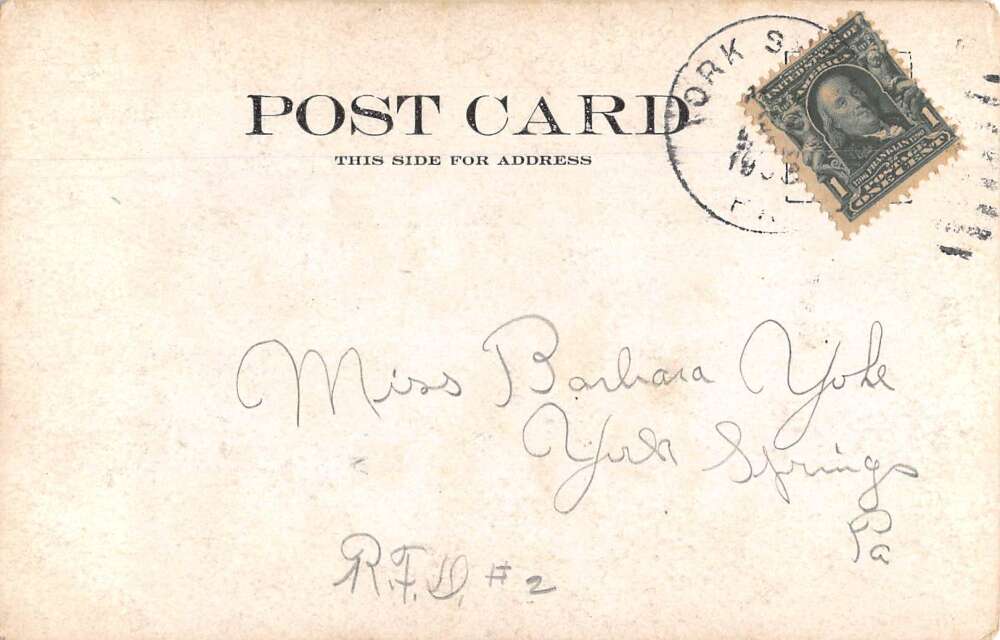 POST CARD
THIS SIDE FOR ADDRESS
YORK
PA
UNITED STATES OF
AMERICA
1 1
FRANKLIN
POSTAGE
ONE CENT
Miss Barbara Yohe
York Springs
Pa
R.F.D. #2